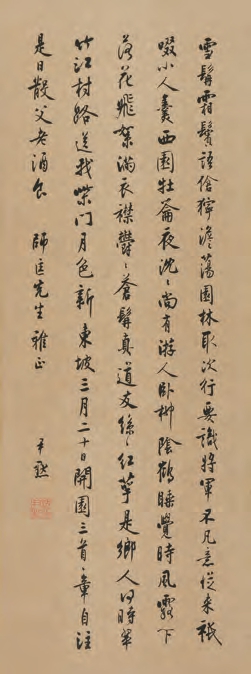 雪髯霜鬢語傖獰澹蕩園林取次行要識將軍不凡意從來祗
啜小人羹西園牡籥夜沈〻尚有游人臥柳陰鶴睡覺時風露下
落花飛絮滿衣襟鬱〻蒼髯真道友絲〻紅萼是鄉人何時翠
竹江村路送我柴門月色新 東坡三月二十日開園三首〻章自注
是日散父老酒食 師匡先生雅正 尹默